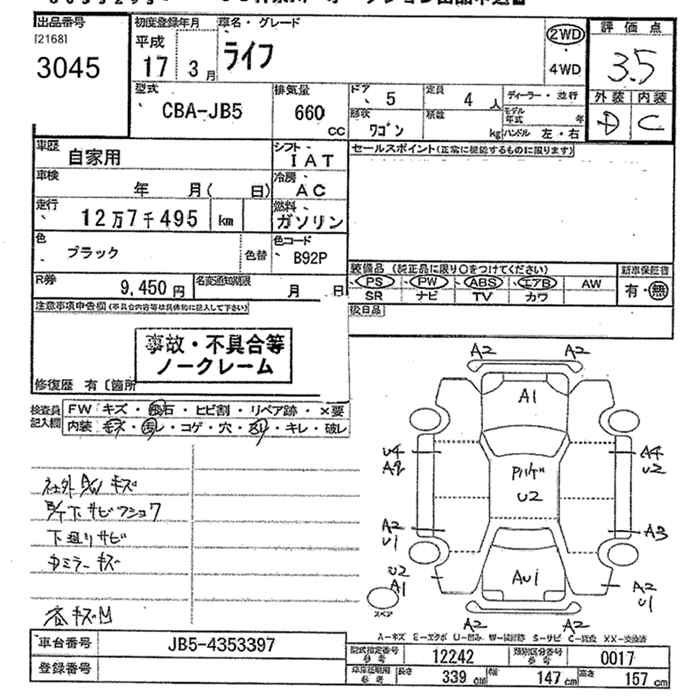 出品番号
[2168]
3045
初度登録年月
平成
17 3月
車名・グレード
ライフ
2WD
4WD
評価点
3.5
外装 内装
D C
型式
CBA-JB5
排気量
660
cc
ドア
5
定員
4 人
ディーラー・並行
形状
ワゴン
積載
kg
モデル年式
年
ハンドル 左・右
車歴
自家用
シフト
IAT
セールスポイント(正常に機能するものに限ります)
車検
年 月( 日)
冷房
AC
走行
12万7千495 km
燃料
ガソリン
色
ブラック
色替
色コード
B92P
R券
9,450円
名変通知期限
月 日
装備品 (純正品に限り○をつけてください)
新車保証書
PS PW ABS エアB AW
有・無
SR ナビ TV カワ
後日品
注意事項申告欄(不具合内容等は具体的に記入して下さい)
事故・不具合等
ノークレーム
修復歴 有〔箇所
検査員
記入欄
FW キズ・飛石・ヒビ割・リペア跡・×要
内装 キズ・汚レ・コゲ・穴・スリ・キレ・破レ
社外AW キズ
下廻りサビ
内ミラーキズ
A2 A2
A1
U4
A2
A4
U2
U2
A2
U1
A3
U2
A1
AU1
A2
U1
スペア
A2 A2
A-キズ E-エクボ U-凹み W-補修跡 S-サビ C-腐食 XX-交換済
車台番号
JB5-4353397
登録番号
型式指定番号
参考
12242
類別区分番号
参考
0017
参考
長さ
339 cm
幅
147 cm
高さ
157 cm